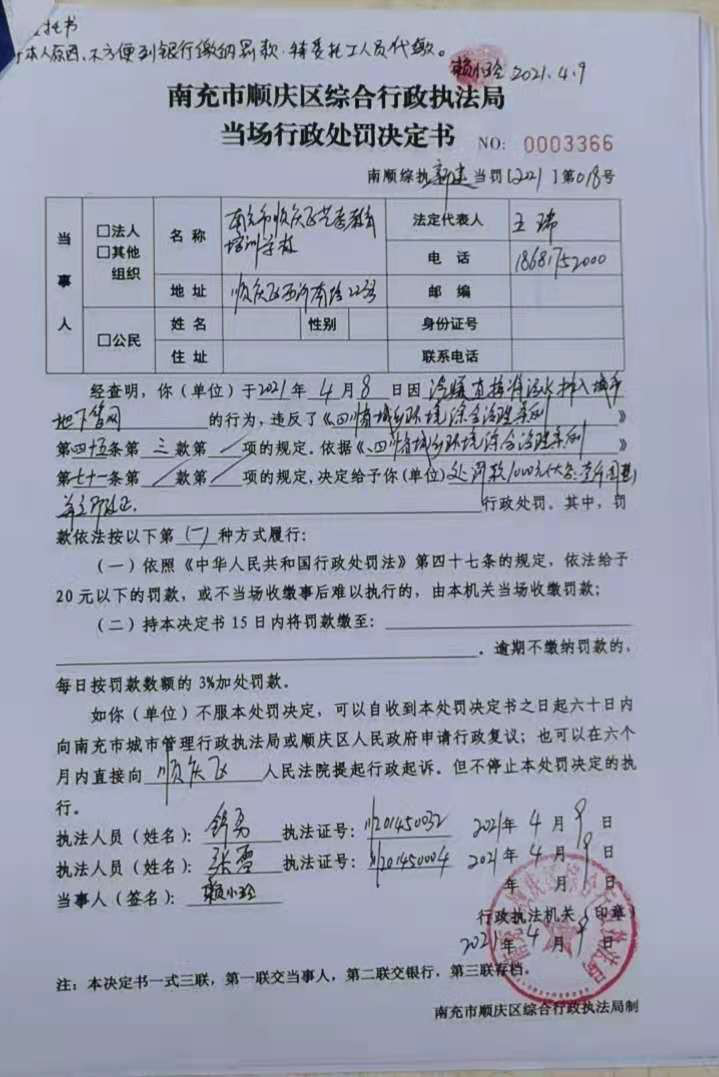 托书
本人原因、不方便到银行缴纳罚款.特委托工人员代缴。
赖小玲 2021.4.9
南充市顺庆区综合行政执法局
当场行政处罚决定书 NO: 0003366
南顺综执新建当罚[2021]第018号
当事人
□法人
□其他
组织
名称 南充市顺庆区艺 教育
培训学校
法定代表人 王瑞
电话 18681752000
地址 顺庆区西河南路22号
邮编
□公民
姓名 性别 身份证号
住址 联系电话
经查明，你（单位）于2021年4月8日因 直接将污水排入城市
地下管网 的行为，违反了《四川省城乡环境综合治理条例》
第四十五条第三款第／项的规定。依据《四川省城乡环境综合治理条例》
第七十一条第／款第／项的规定，决定给予你(单位)处罚款1000元(大写:壹仟圆整)
行政处罚。其中，罚
款依法按以下第(一)种方式履行：
（一）依照《中华人民共和国行政处罚法》第四十七条的规定，依法给予
20元以下的罚款，或不当场收缴事后难以执行的，由本机关当场收缴罚款；
（二）持本决定书15日内将罚款缴至：
。逾期不缴纳罚款的，
每日按罚款数额的3%加处罚款。
如你（单位）不服本处罚决定，可以自收到本处罚决定书之日起六十日内
向南充市城市管理行政执法局或顺庆区人民政府申请行政复议；也可以在六个
月内直接向 顺庆区 人民法院提起行政起诉。但不停止本处罚决定的执
行。
执法人员（姓名）： 执法证号：11201450032 2021年4月9日
执法人员（姓名）：张雪 执法证号：11201450004 2021年4月9日
当事人（签名）：赖小玲 年 月 日
行政执法机关（印章）
2021年4月9日
注：本决定书一式三联，第一联交当事人，第二联交银行，第三联存档。
南充市顺庆区综合行政执法局制